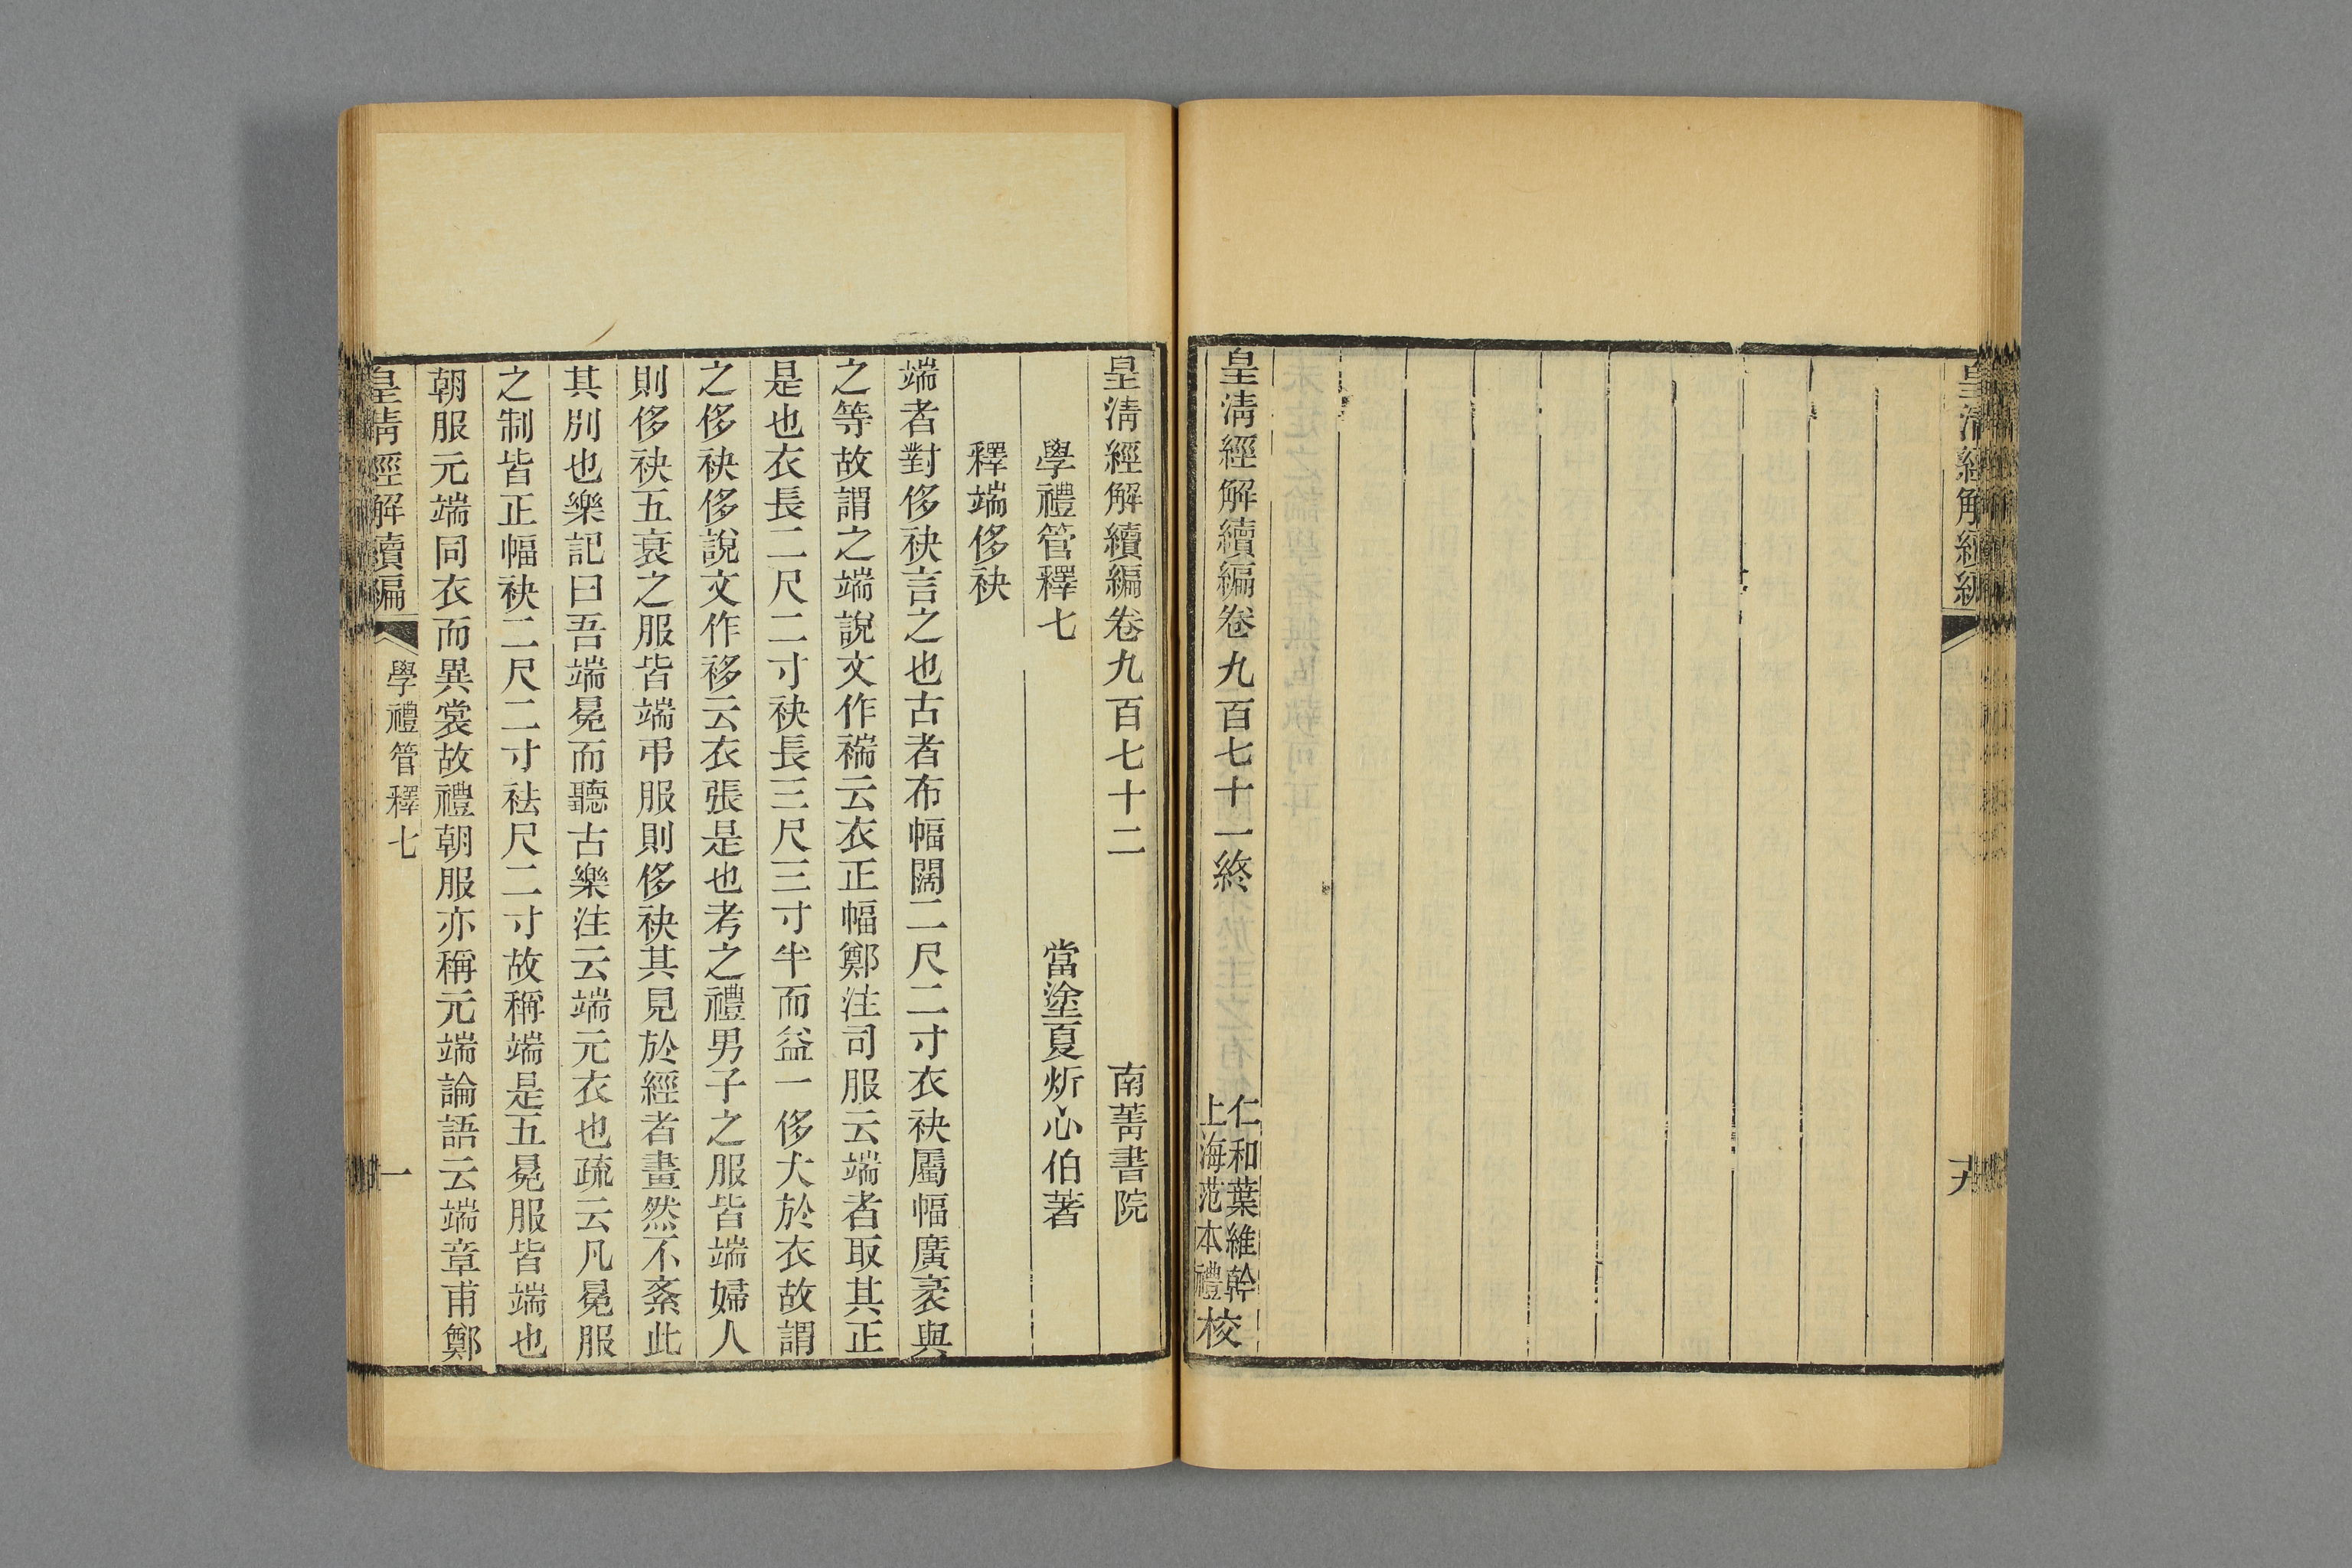 皇清經解續編
皇清經解續編卷九百七十一終
仁和葉維幹
上海范本禮
校
皇清經解續編卷九百七十二
南菁書院
學禮管釋七
當塗夏炘心伯著
釋端侈袂
端者對侈袂言之也古者布幅闊二尺二寸衣袂屬幅廣袤與
之等故謂之端說文作褍云衣正幅鄭注司服云端者取其正
是也衣長二尺二寸袂長三尺三寸半而益一侈大於衣故謂
之侈袂侈說文作袳云衣張是也考之禮男子之服皆端婦人
則侈袂五衰之服皆端弔服則侈袂其見於經者畫然不紊此
其別也樂記曰吾端冕而聽古樂注云端元衣也疏云凡冕服
之制皆正幅袂二尺二寸袪尺二寸故稱端是五冕服皆端也
朝服元端同衣而異裳故禮朝服亦稱元端論語云端章甫鄭
皇清經解續編
學禮管釋七
一